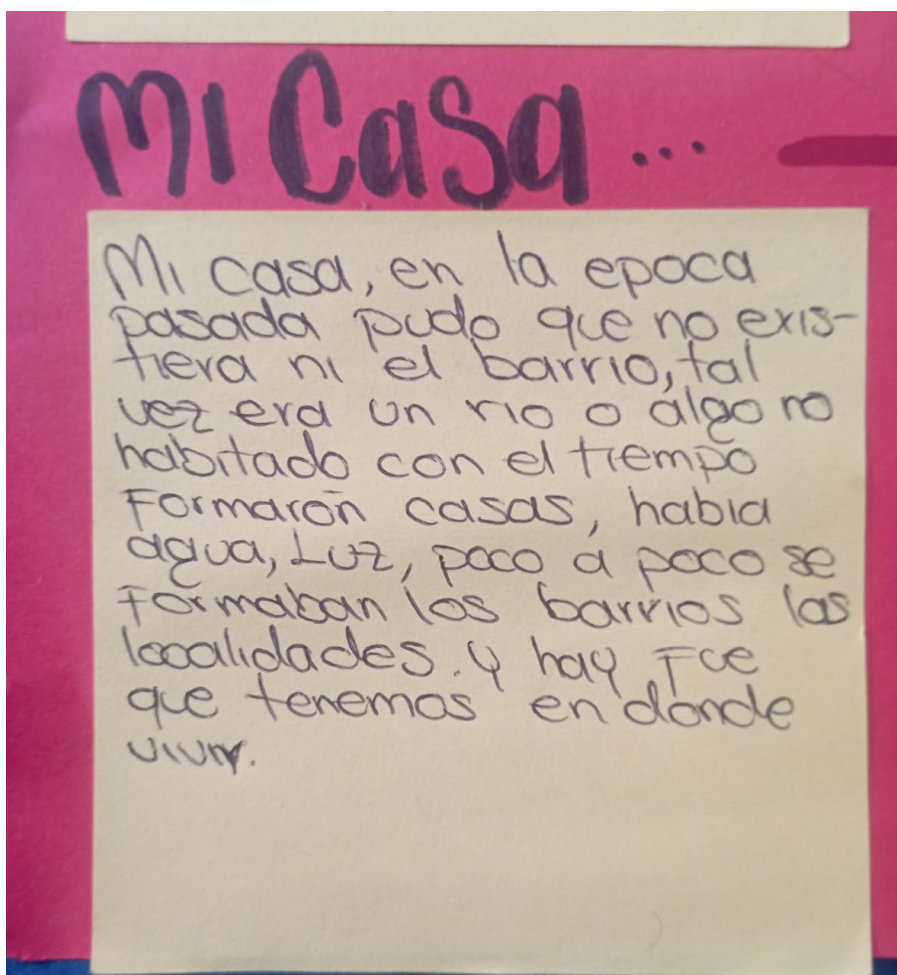 Mi Casa...
Mi casa, en la epoca
pasada pudo que no exis-
tiera ni el barrio, tal
vez era un rio o algo no
habitado con el tiempo
Formarón casas, habia
agua, Luz, poco a poco se
Formaban los barrios las
localidades. y hay Fue
que tenemos en donde
vivir.